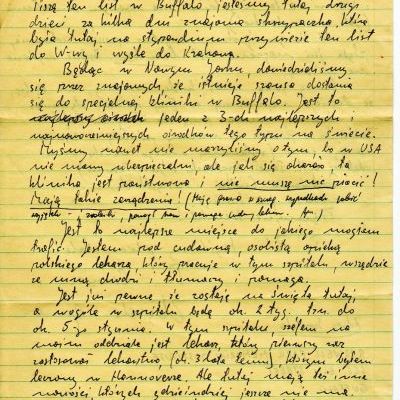 Piszę ten list w Buffalo, jesteśmy tutaj drugi
dzień za kilka dni znajoma skrzypaczka, która
była tutaj na stypendium przywiezie ten list
do W-wy i wyśle do Krakowa.
Będąc w Nowym Jorku, dowiedzieliśmy
się przez znajomych, że istnieje szansa dostania
się do specjalnej kliniki w Buffalo. Jest to
jeden z 3-ch najlepszych i
najnowocześniejszych ośrodków tego typu na świecie.
Myśmy nawet nie marzyliśmy o tym bo w USA
nie mamy ubezpieczalni, ale jak się okazało, ta
klinika jest państwowa i nie muszę nic płacić!
Mają takie zarządzenia! (
i pomaga
Jest to najlepsze miejsce do jakiego mogłem
trafić. Jestem pod cudowną, osobistą opieką
polskiego lekarza, który pracuje w tym szpitalu, wszędzie
ze mną chodzi i tłumaczy i pomaga.
Jest już pewne że zostaję na Święta tutaj,
a wogóle w szpitalu będę ok. 2 tyg. tzn. do
ok. 5-go stycznia. W tym szpitalu, szefem na
moim oddziale jest lekarz, który pierwszy raz
zastosował lekarstwo, (ok. 3 lata temu), którym byłem
leczony w Hannoverze. Ale tutaj mają też inne
nowości, których gdzieindziej jeszcze nie ma.